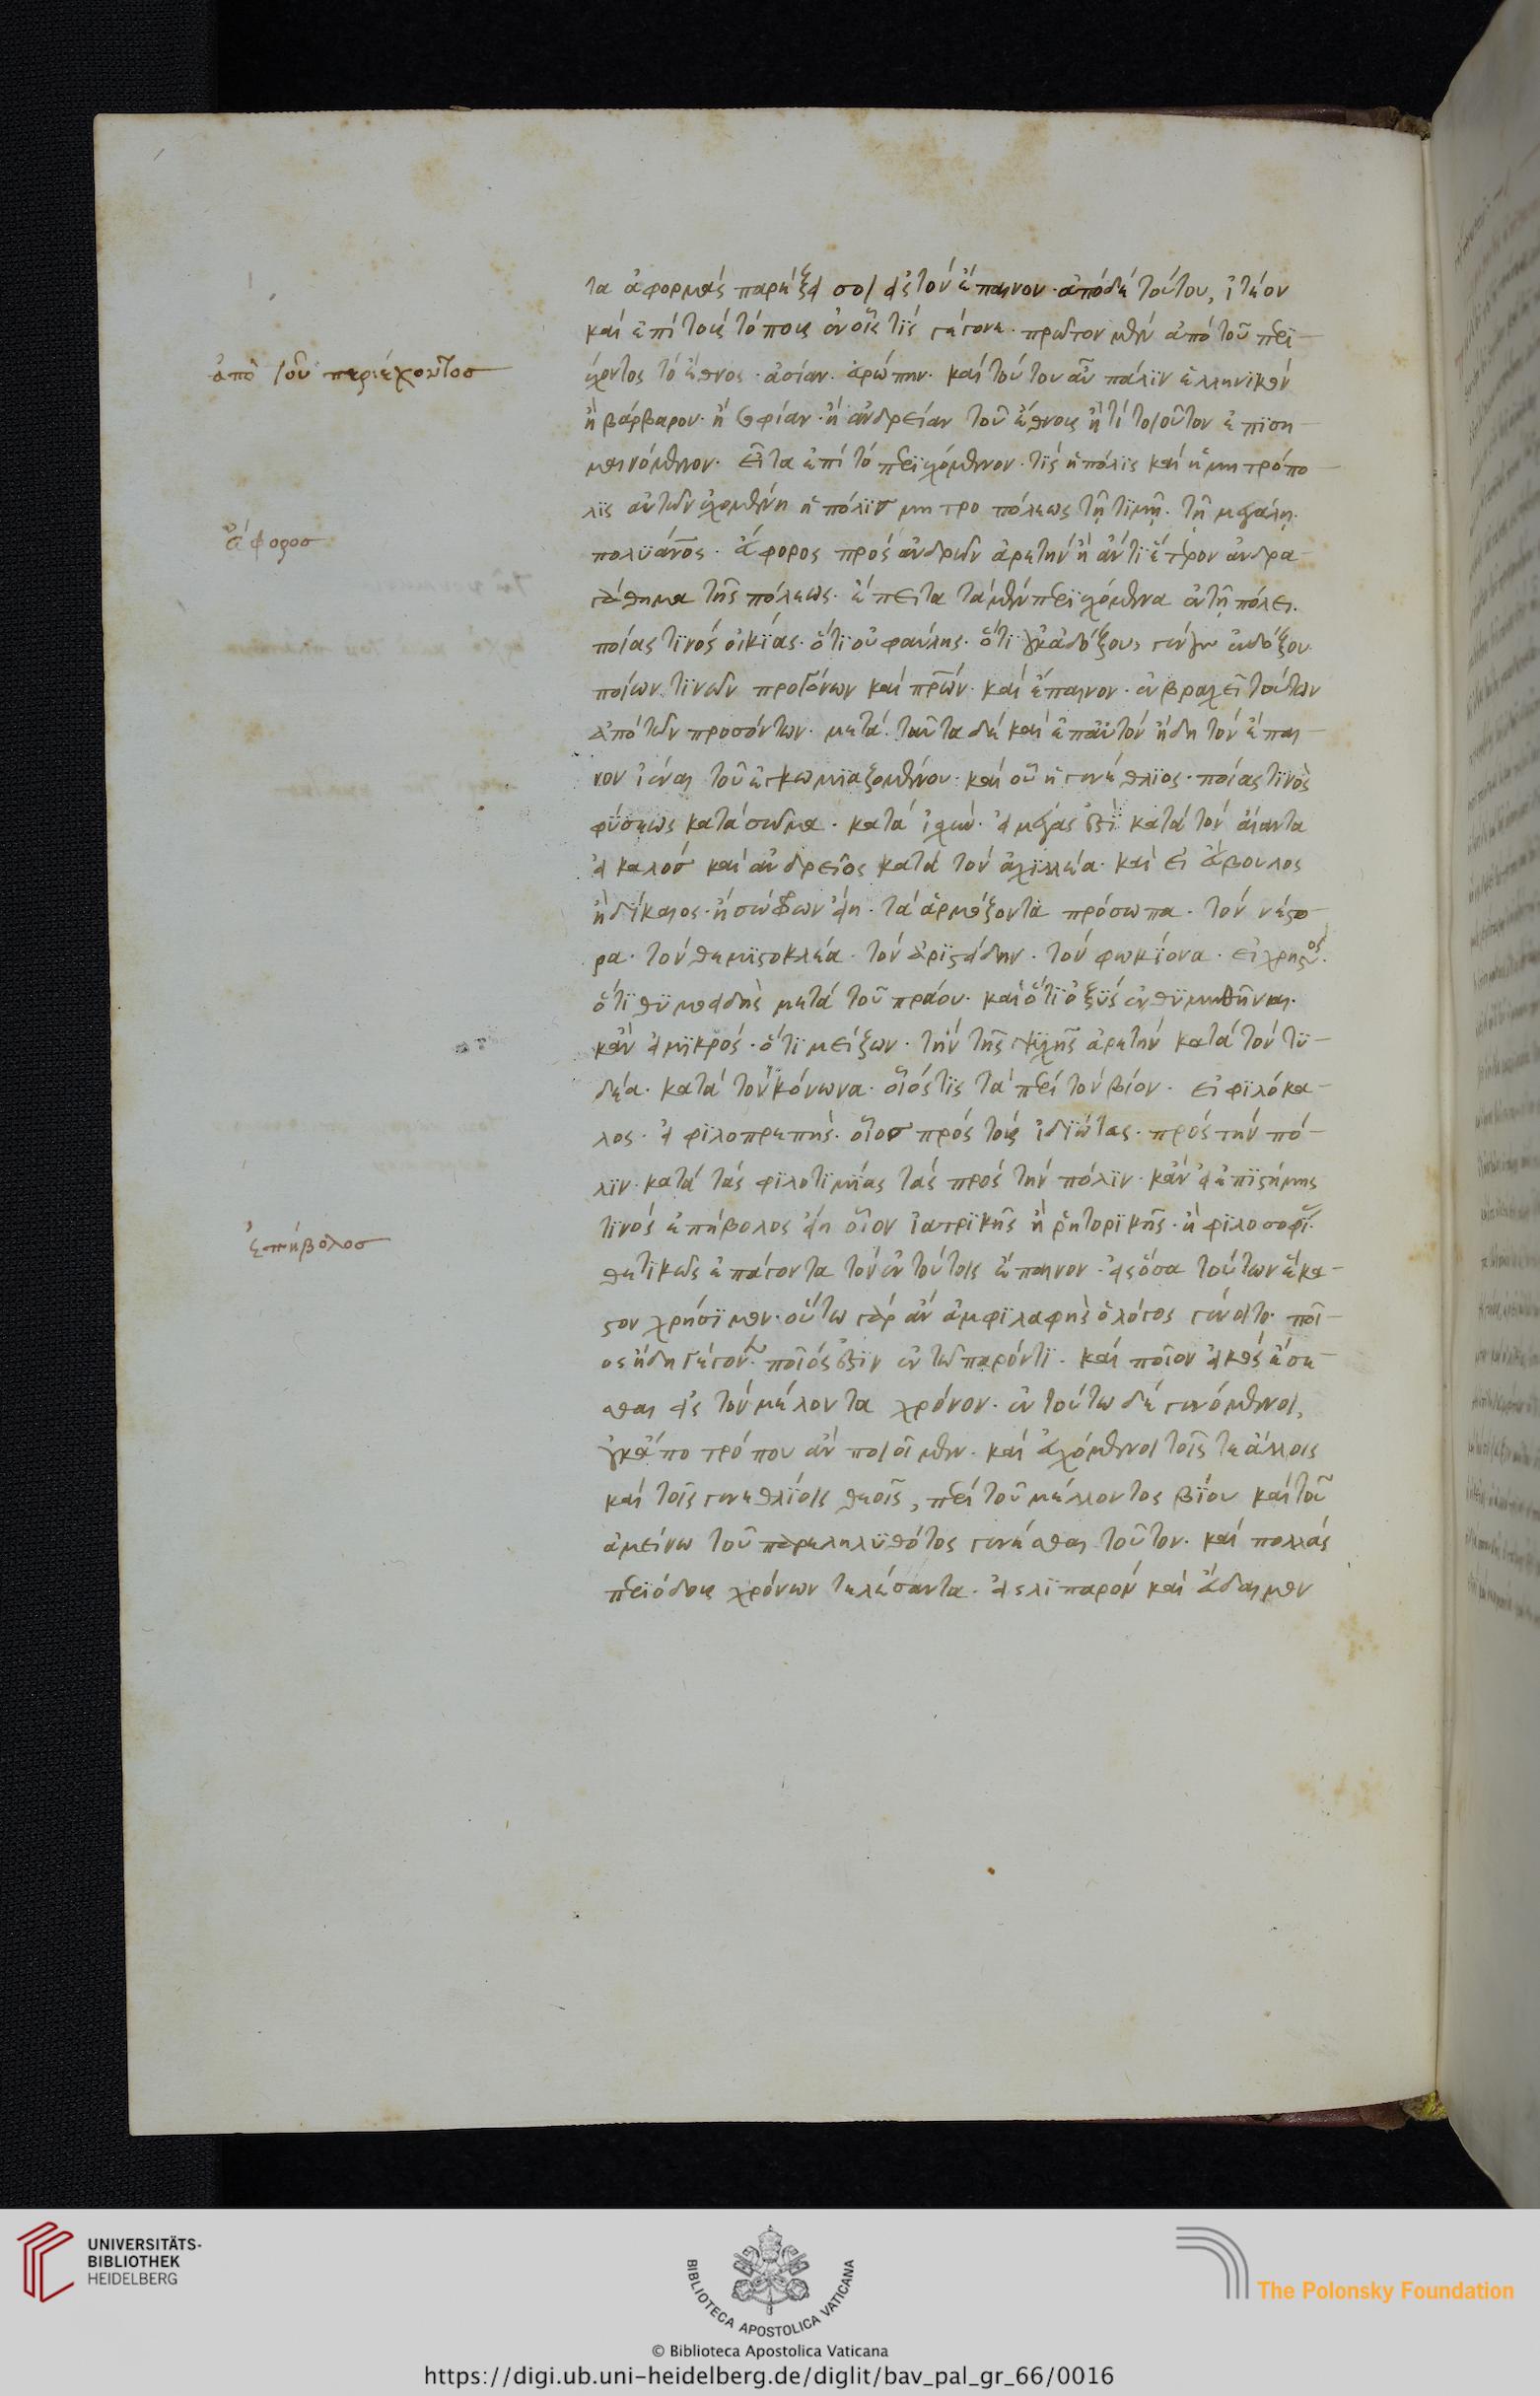 τα ἀφορμὰς παρέξει σοι εἰς τὸν ἔπαινον. ἀπὸ δὲ τούτου, ἰτέον
καὶ ἐπὶ τοὺς τόπους ἐν οἷς τις γέγονε. πρῶτον μὲν ἀπὸ τοῦ περι-
ἀπὸ τοῦ περιέχοντοσ
έχοντος τὸ ἔθνος. ἀσίαν. εὐρώπην. καὶ τούτου αὖ πάλιν ἑλληνικὸν
ἢ βάρβαρον. ἢ σοφίαν. ἢ ἀνδρείαν τοῦ ἔθνους ἤ τι τοιοῦτον ἐπιση-
μαινόμενον. εἶτα ἐπὶ τὸ περιεχόμενον. τίς ἡ πόλις καὶ ἡ μητρόπο-
λις αὐτῶν ἐχομένη ἡ πόλισ μητροπόλεως τῇ τιμῇ. τῇ μεγάλῃ.
εὔφοροσ
πολυάνος. εὔφορος πρὸς ἀνδρῶν ἀρετὴν ἢ ἄν τι ἕτερον ἀνδρα-
γάθημα τῆς πόλεως. ἔπειτα τὰ μὲν περιεχόμενα ἐν τῇ πόλει.
ποίας τινὸς οἰκίας. ὅτι οὐ φαύλης. ὅτι οὐκ ἀδόξου, γοῦν ἐνδόξου.
ποίων τινῶν προγόνων καὶ πρῶν. καὶ ἔπαινον. ἐν βραχεῖ τούτων
ἀπὸ τῶν προσόντων. μετὰ ταῦτα δὲ καὶ ἐπ' αὐτὸν ἤδη τὸν ἔπαι-
νον ἰέναι τοῦ ἐγκωμιαζομένου. καὶ οὗ ἡ γενέθλιος. ποίας τινὸς
φύσεως κατὰ σῶμα. κατὰ ψυχὴν. εἰ μέγας ἐστὶ κατὰ τὸν αἴαντα
εἰ καλὸσ καὶ ἀνδρεῖος κατὰ τὸν ἀχιλλέα. καὶ εἰ εὔβουλος
ἢ δίκαιος. ἢ σώφρων εἴη. τὰ ἁρμόζοντα πρόσωπα. τὸν νέστο-
ρα. τὸν θεμιστοκλέα. τὸν ἀριστείδην. τὸν φωκίονα. εἰ χρηστός.
ὅτι θυμοειδὴς μετὰ τοῦ πράου. καὶ ὅτι ὀξὺς ἐνθυμηθῆναι.
κἂν εἰ μικρὸς. ὅτι μείζων. τὴν τῆς ψυχῆς ἀρετὴν κατὰ τὸν τυ-
δέα. κατὰ τὸν κόνωνα. οἷός τις τὰ περὶ τὸν βίον. εἰ φιλόκα-
λος. εἰ φιλοπρεπὴς. οἷοσ πρὸς τοὺς ἰδιώτας. πρὸς τὴν πό-
λιν. κατὰ τὰς φιλοτιμίας τὰς πρὸς τὴν πόλιν. κἂν εἰ ἐπιστήμης
ἐπήβολοσ
τινὸς ἐπήβολος εἴη οἷον ἰατρικῆς ἢ ῥητορικῆς. ἢ φιλοσοφί.
θετικῶς ἐπάγοντα τὸν ἐν τούτοις ἔπαινον. εἰς ὅσα τούτων ἕκα-
στον χρήσιμον. οὕτω γὰρ ἂν ἀμφιλαφὴς ὁ λόγος γένοιτο. ποῖ-
ος ἤδη γέγονε. ποῖός ἐστιν ἐν τῶ παρόντι. καὶ ποῖον εἰκὸς ἔσε-
σθαι εἰς τὸν μέλοντα χρόνον. ἐν τούτω δὲ γενόμενοι,
οὐκ ἄπο τρόπου ἂν ποιοῖμεν. καὶ εὐχόμενοι τοῖς τε ἄλλοις
καὶ τοῖς γενεθλίοις θεοῖς, περὶ τοῦ μέλλοντος βίου καὶ τοῦ
ἀμείνω τοῦ παρεληλυθότος γενέσθαι τοῦτον. καὶ πολλὰς
περιόδους χρόνων τελέσαντα. εἰς λιπαρὸν καὶ εὔδαιμον
UNIVERSITÄTS-
BIBLIOTHEK
HEIDELBERG
BIBLIOTECA APOSTOLICA VATICANA
The Polonsky Foundation
© Biblioteca Apostolica Vaticana
https://digi.ub.uni-heidelberg.de/diglit/bav_pal_gr_66/0016